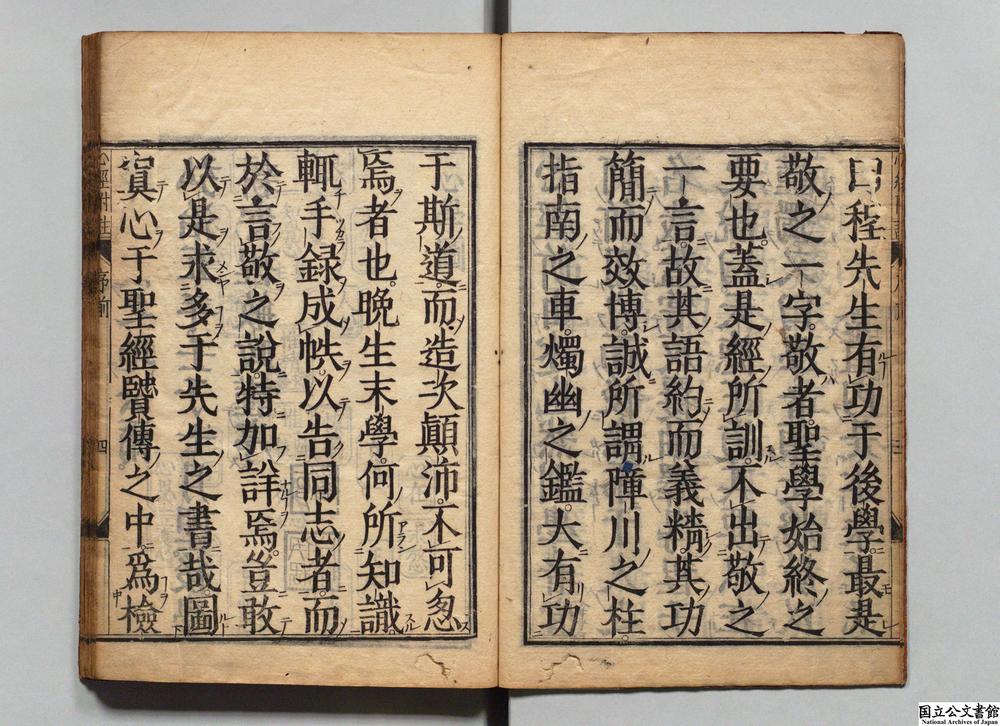 曰程先生有功于後學最是
敬之一字敬者聖學始終之
要也蓋是經所訓不出敬之
一言故其語約而義精其功
簡而效博誠所謂障川之柱
指南之車燭幽之鑑大有功
于斯道而造次顛沛不可忽
焉者也晩生末學何所知識
輒手録成帙以告同志者而
於言敬之說特加詳焉豈敢
以是求多于先生之書哉圖
寘心于聖經賢傳之中爲檢
四
国立公文書館
National Archives of Japan